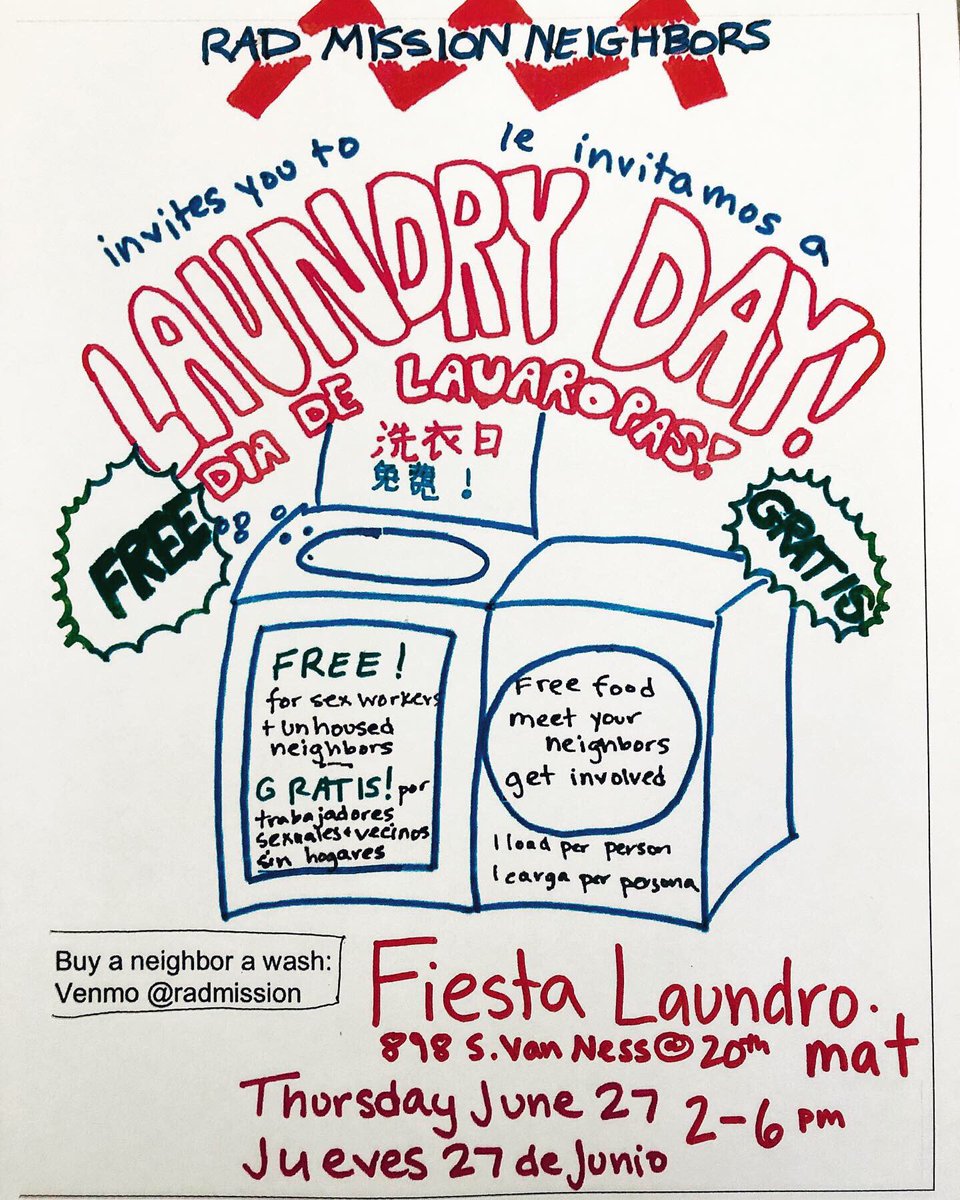 RAD MISSION NEIGHBORS
invites you to
le invitamos a
LAUNDRY DAY!
DIA DE LAVAROPAS!
洗衣日
免費！
FREE
GRATIS
FREE!
for sex workers
+ unhoused
neighbors
GRATIS! por
trabajadores
sexuales + vecinos
sin hogares
Free food
meet your
neighbors
get involved
1 load per person
1 carga per persona
Buy a neighbor a wash:
Venmo @radmission
Fiesta Laundro.
mat
898 S. Van Ness @ 20th
Thursday June 27
Jueves 27 de Junio
2-6 pm